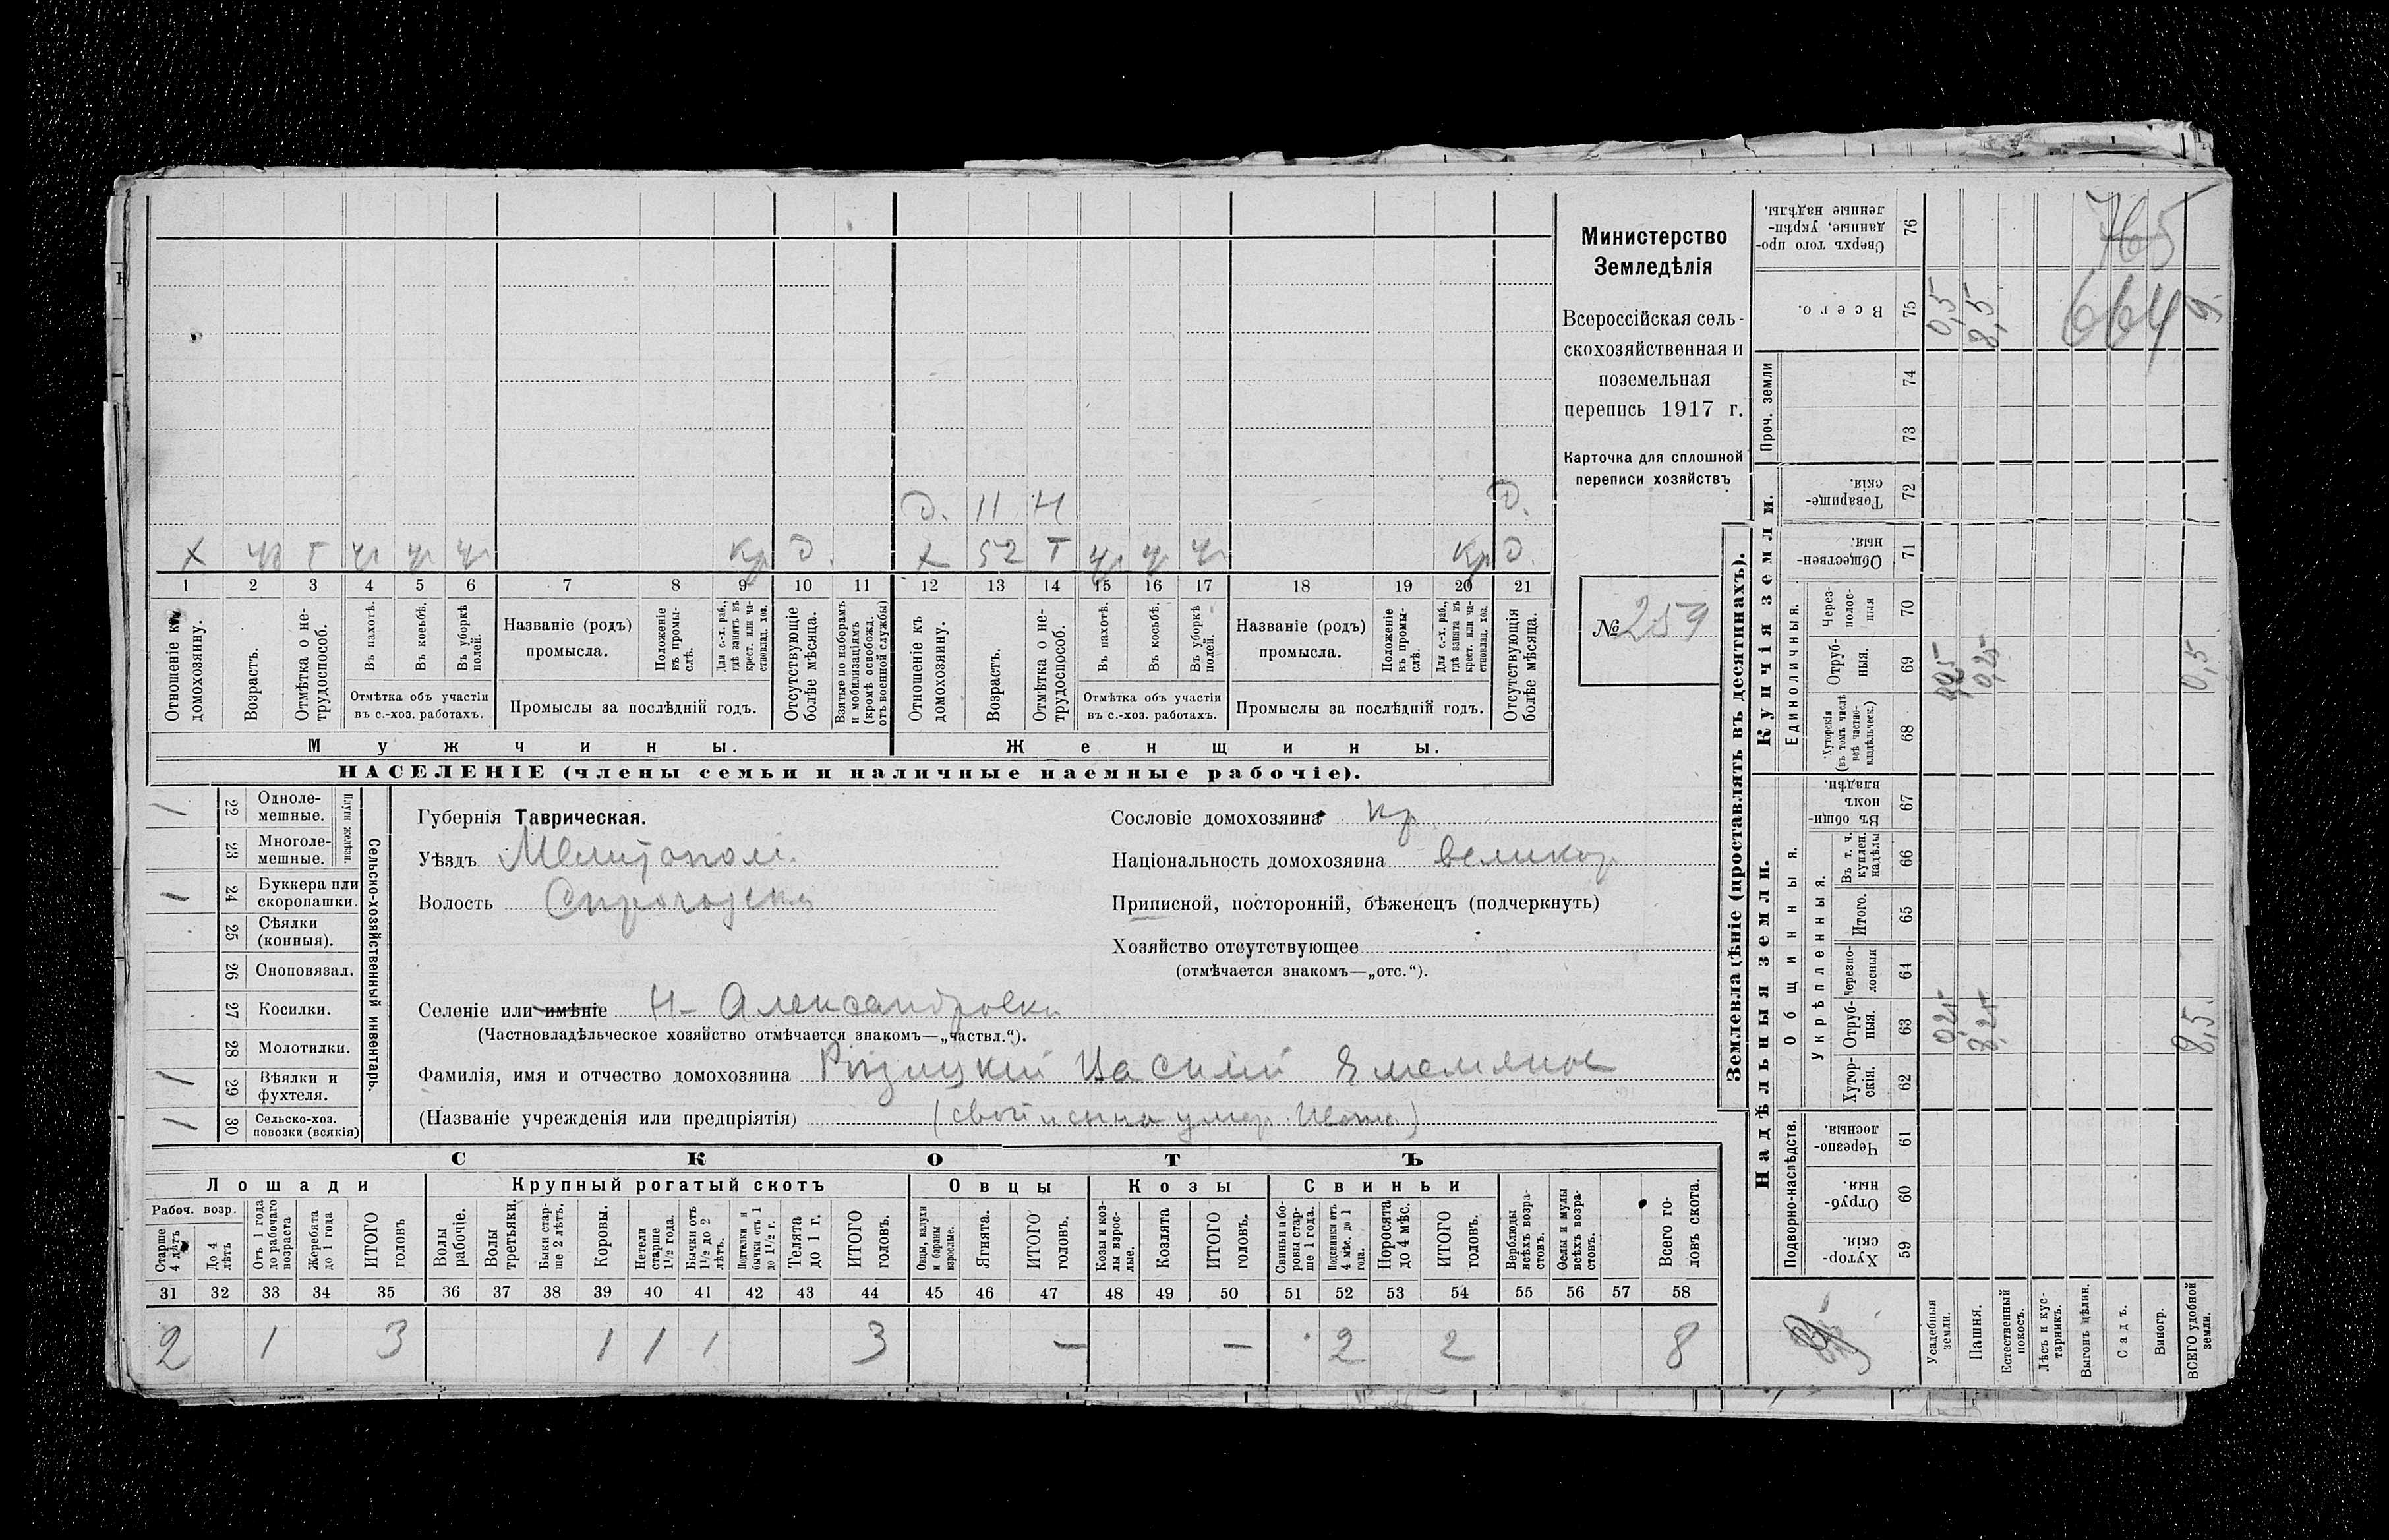 Министерство
Земледѣлія
Всероссійская сель-
скохозяйственная и
поземельная
перепись 1917 г.
Карточка для сплошной
переписи хозяйствъ
№ 259
Д. 11 Н Д.
Х Т Кр Д. Х 52 Т Кр Д.
1 2 3 4 5 6 7 8 9 10 11 12 13 14 15 16 17 18 19 20 21
Отношеніе къ домохозяину.
Возрастъ.
Отмѣтка о не-трудоспособ.
Въ пахотѣ.
Въ косьбѣ.
Въ уборкѣ полей.
Отмѣтка объ участіи
въ с.-хоз. работахъ.
Названіе (родъ)
промысла.
Положеніе въ промы-слѣ.
Для с.-х. раб., гдѣ занятъ въ крест. или ча-стновлад. хоз.
Промыслы за послѣдній годъ.
Отсутствующіе болѣе мѣсяца.
Взятые по наборамъ и мобилизаціямъ (кромѣ освобожд. отъ военной службы)
Отношеніе къ домохозяину.
Возрастъ.
Отмѣтка о не-трудоспособ.
Въ пахотѣ.
Въ косьбѣ.
Въ уборкѣ полей.
Отмѣтка объ участіи
въ с.-хоз. работахъ.
Названіе (родъ)
промысла.
Положеніе въ промы-слѣ.
Для с.-х. раб., гдѣ занята въ крест. или ча-стновлад. хоз.
Промыслы за послѣдній годъ.
Отсутствующія болѣе мѣсяца.
Мужчины. Женщины.
НАСЕЛЕНІЕ (члены семьи и наличные наемные рабочіе).
Сельско-хозяйственный инвентарь.
Плуги желѣзн.
1 22 Одноле-мешные.
23 Многоле-мешные.
1 24 Буккера или скоропашки.
25 Сѣялки (конныя).
26 Сноповязал.
27 Косилки.
28 Молотилки.
1 29 Вѣялки и фухтеля.
1 30 Сельско-хоз. повозки (всякія)
Губернія Таврическая.
Уѣздъ Мелитопол.
Волость
Селеніе или имѣніе Н-Александровка
(Частновладѣльческое хозяйство отмѣчается знакомъ—„частвл.“).
Фамилія, имя и отчество домохозяина Василій Емельянов
(Названіе учрежденія или предпріятія)
Сословіе домохозяина Кр
Національность домохозяина великор.
Приписной, посторонній, бѣженецъ (подчеркнуть)
Хозяйство отсутствующее
(отмѣчается знакомъ—„отс.“).
СКОТЪ
Лошади Крупный рогатый скотъ Овцы Козы Свиньи
Рабоч. возр.
Старше 4 лѣтъ
До 4 лѣтъ
Отъ 1 года до рабочаго возраста
Жеребята до 1 года
ИТОГО головъ
Волы рабочіе.
Волы третьяки.
Быки стар-ше 2 лѣтъ.
Коровы.
Нетели старше 1½ года.
Бычки отъ 1½ до 2 лѣтъ.
Подтелки и бычки отъ 1 до 1½ г.
Телята до 1 г.
ИТОГО головъ.
Овцы, валухи и бараны взрослые.
Ягнята.
ИТОГО головъ.
Козы и коз-лы взрос-лые.
Козлята
ИТОГО головъ.
Свиньи и бо-ровы стар-ше 1 года.
Подсвинки отъ 4 мѣс. до 1 года.
Поросята до 4 мѣс.
ИТОГО головъ.
Верблюды всѣхъ возра-стовъ.
Ослы и мулы всѣхъ возра-стовъ.
Всего го-ловъ скота.
31 32 33 34 35 36 37 38 39 40 41 42 43 44 45 46 47 48 49 50 51 52 53 54 55 56 57 58
2 1 3 1 1 1 3 — — 2 2 8
Землевладѣніе (проставлять въ десятинахъ).
Купчія земли.
Надѣльныя земли.
Сверхъ того про-данные, укрѣп-ленные надѣлы. 76
765
Всего. 75 0,5 8,5 664 9.
Проч. земли
74
73
Товарище-скія. 72
Обществен-ныя. 71
Единоличныя.
Через-полос-ныя 70
Отруб-ныя. 69 0,25 0,5
Хуторскія (въ томъ числѣ всѣ частно-владѣльческ.) 68
Общинныя.
Въ общин-номъ владѣн. 67
Въ т. ч. куплен. надѣлы 66
Укрѣпленныя.
Итого. 65
Черезпо-лосныя 64
Отруб-ныя. 63 8,5
Хутор-скія. 62
Подворно-наслѣдств.
Черезпо-лосныя. 61
Отруб-ныя. 60
Хутор-скія. 59
Усадебныя земли.
Пашня.
Естественный покосъ.
Лѣсъ и кус-тарникъ.
Выгонъ цѣлин.
Садъ.
Виногр.
ВСЕГО удобной земли.